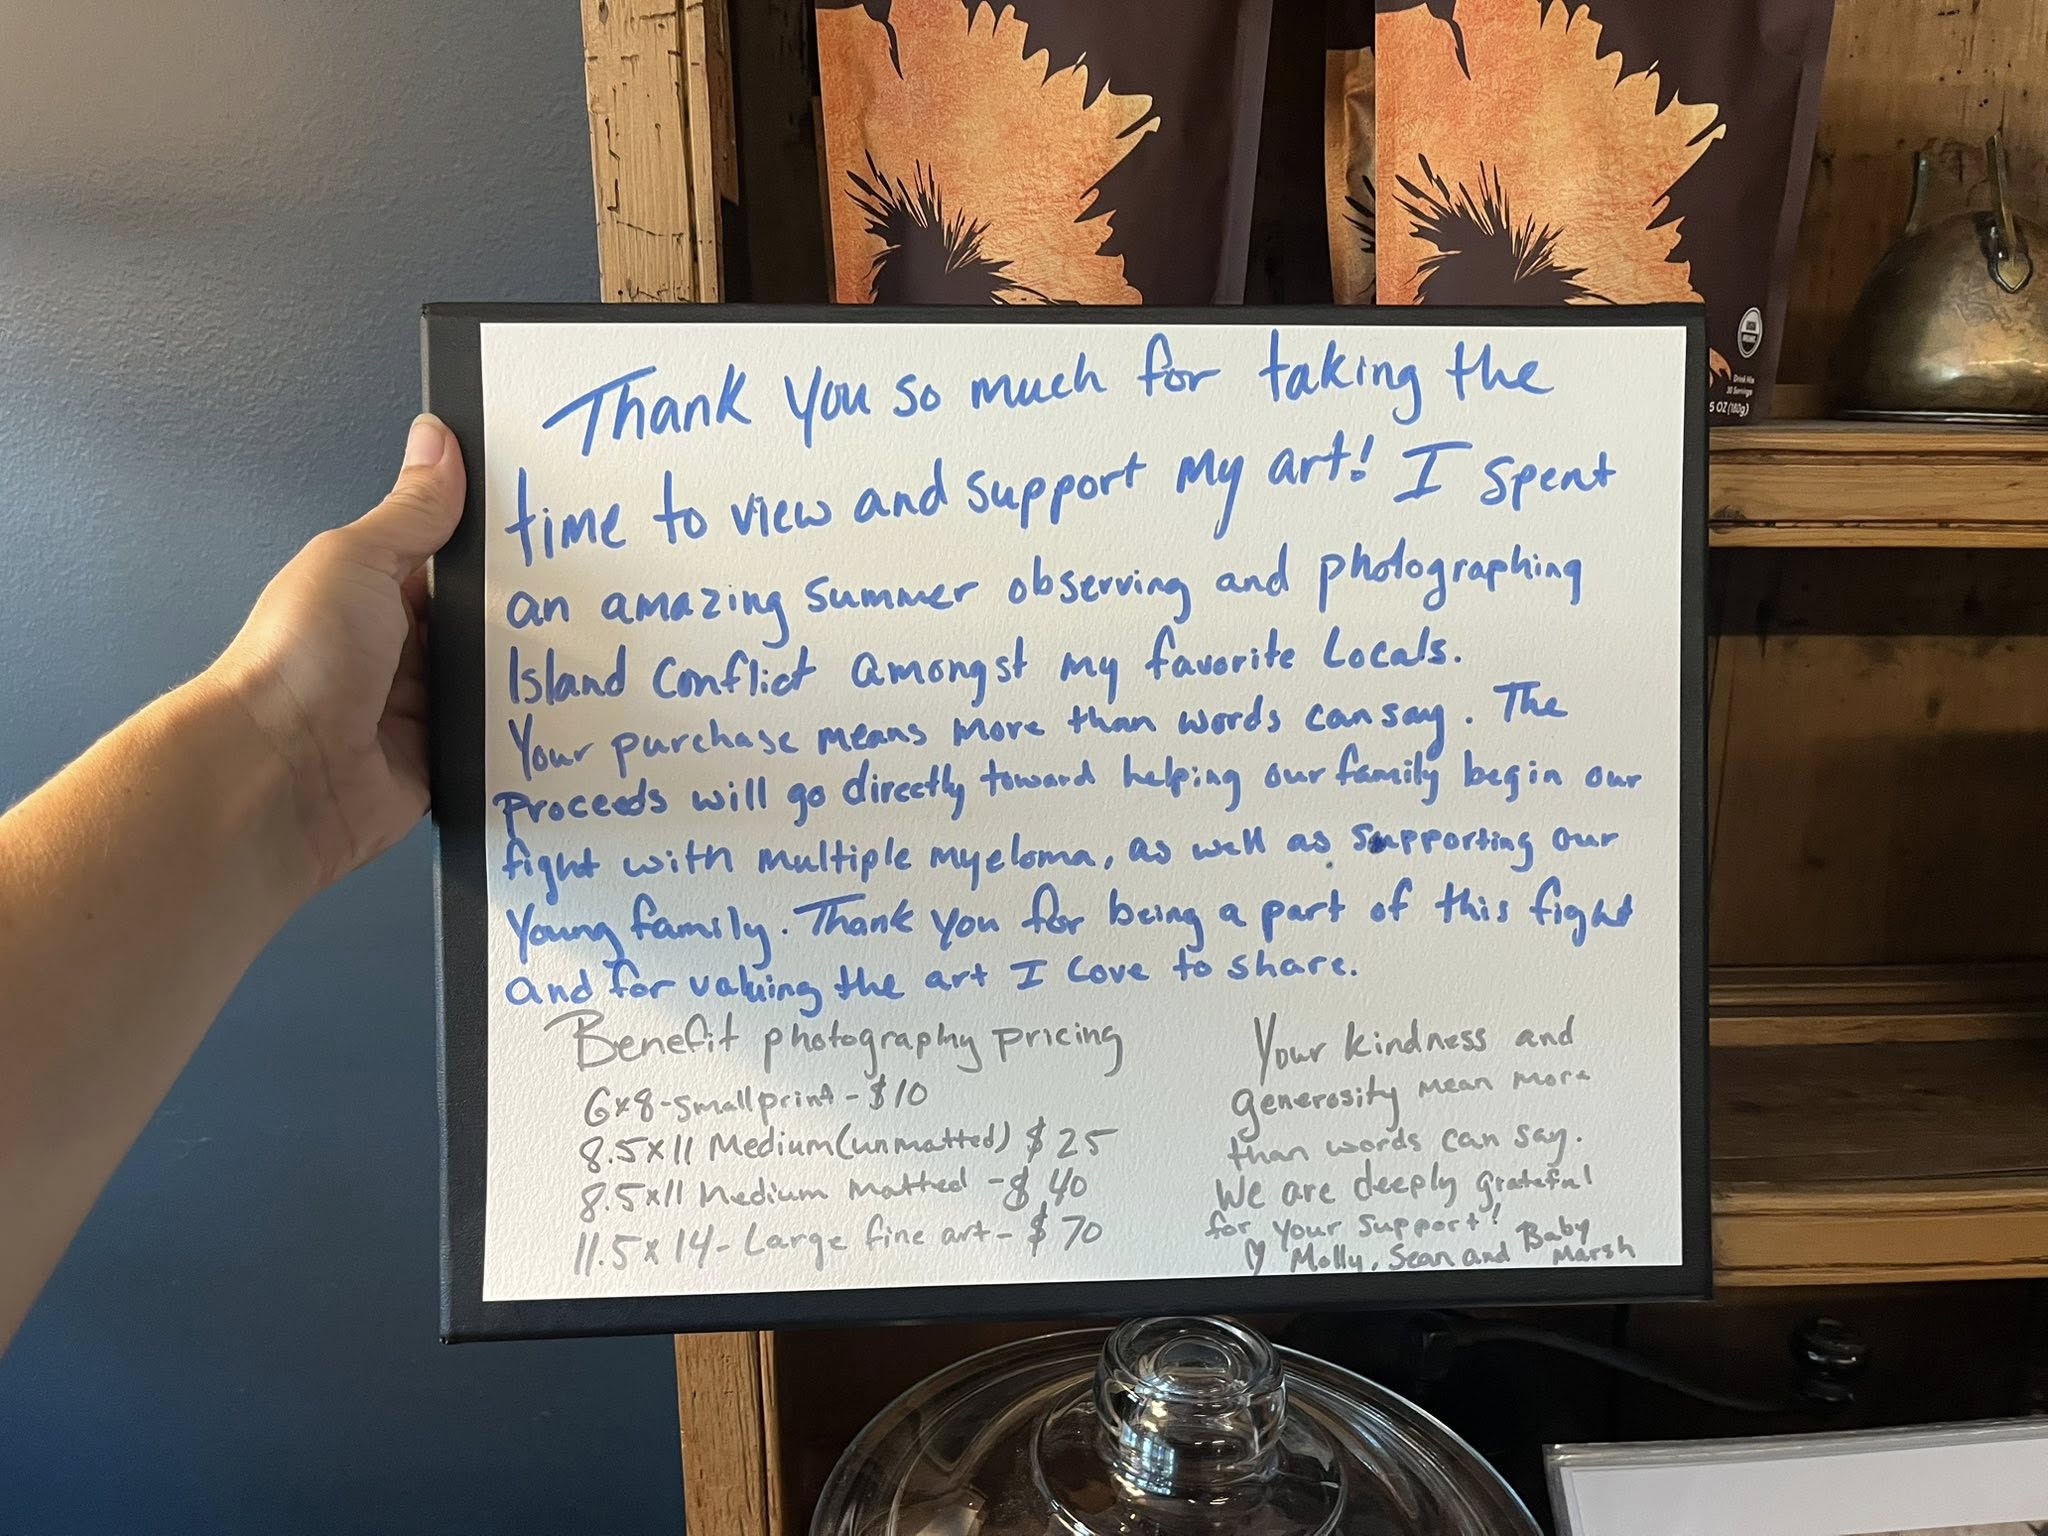 Thank you so much for taking the
time to view and support my art! I spent
an amazing summer observing and photographing
Island Conflict amongst my favorite Locals.
Your purchase means more than words can say. The
proceeds will go directly toward helping our family begin our
fight with multiple myeloma, as well as supporting our
young family. Thank you for being a part of this fight
and for valuing the art I love to share.
Benefit photography pricing
6x8-small print - $10
8.5x11 Medium (unmatted) $25
8.5x11 Medium matted - $40
11.5x14- Large fine art - $70
Your kindness and
generosity mean more
than words can say.
We are deeply grateful
for your support!
♡ Molly, Sean and Baby
Marsh
USDA
ORGANIC
Drink Mix
30 Servings
5 OZ (180g)